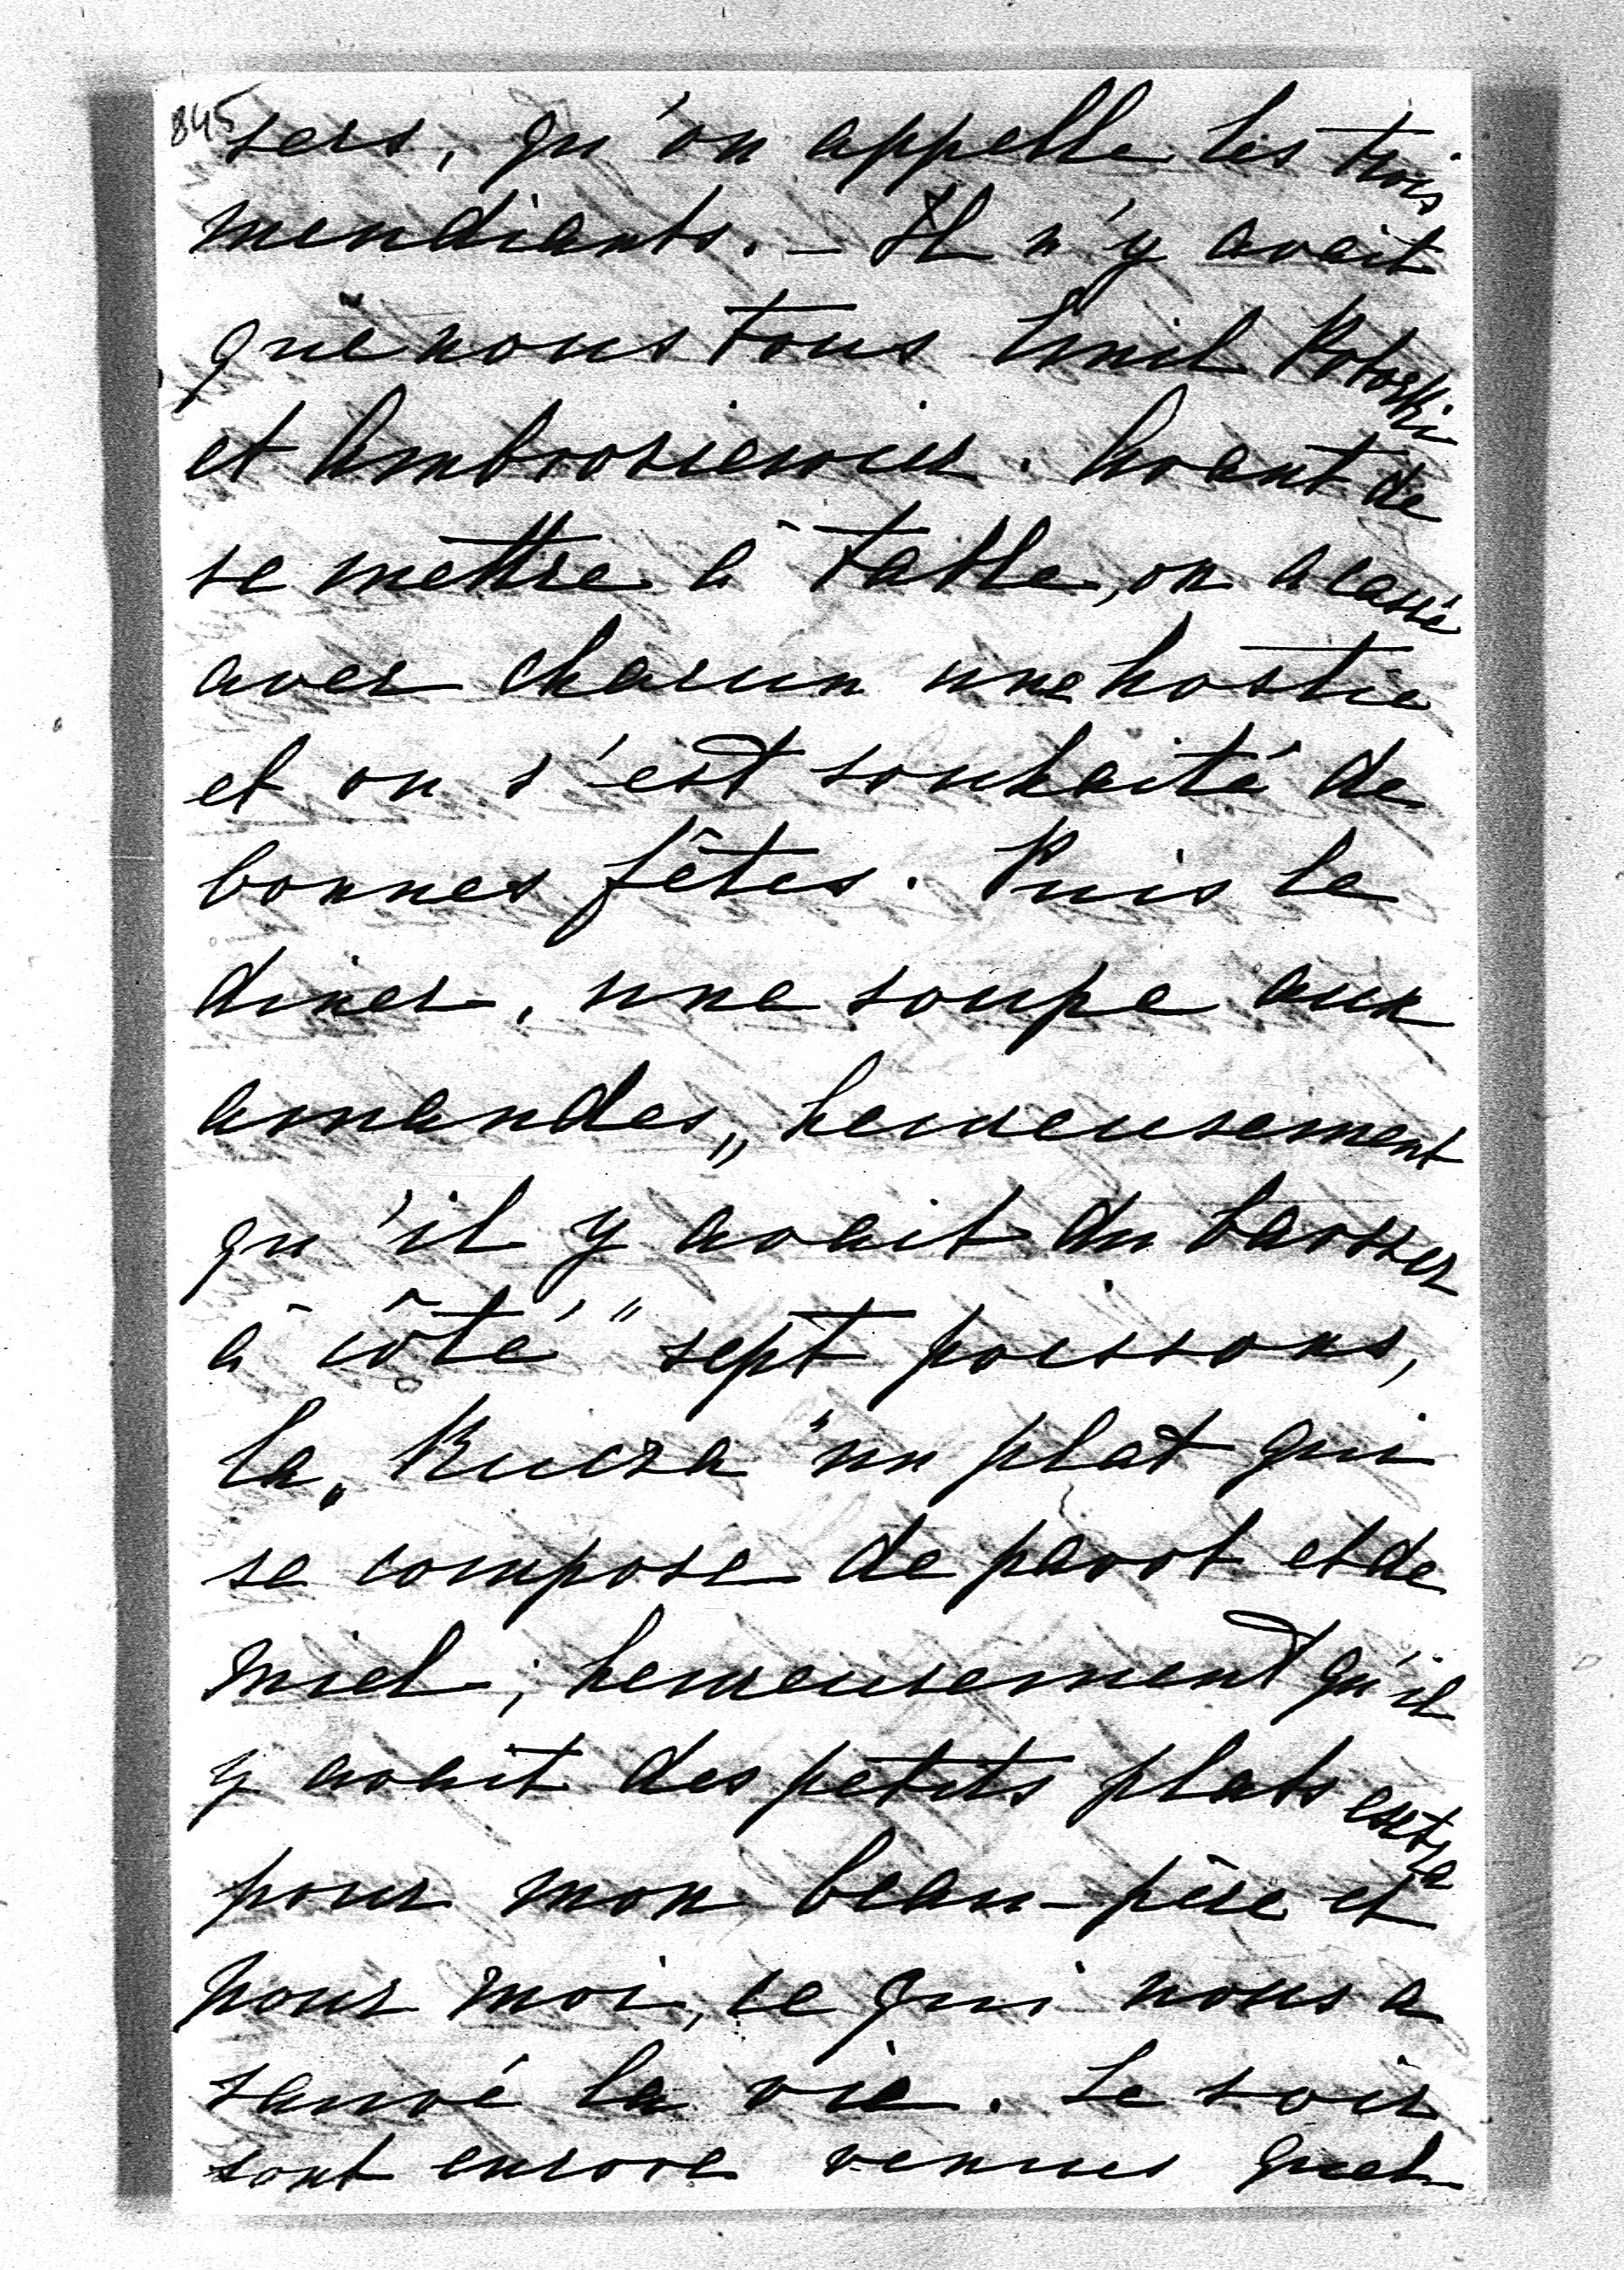 845
sers, qu'on appelle les trois
mendiants. - Il n'y avait
que nous tous Emil Potocki
et Ambrosiewicz. Avant de
se mettre à table, on a cassé
avec chacun une hostie
et on s'est souhaité de
bonnes fêtes. Puis le
diner, une soupe aux
amandes „heureusement
qu'il y avait du barszcz
à côté" sept poissons,
la „Kucza" un plat qui
se compose de pavot et de
miel; heureusement qu'il
y avait des petits plats extra
pour mon beau-père et
pour moi, ce qui nous a
sauvé la vie. Le soir
sont encore venus quel